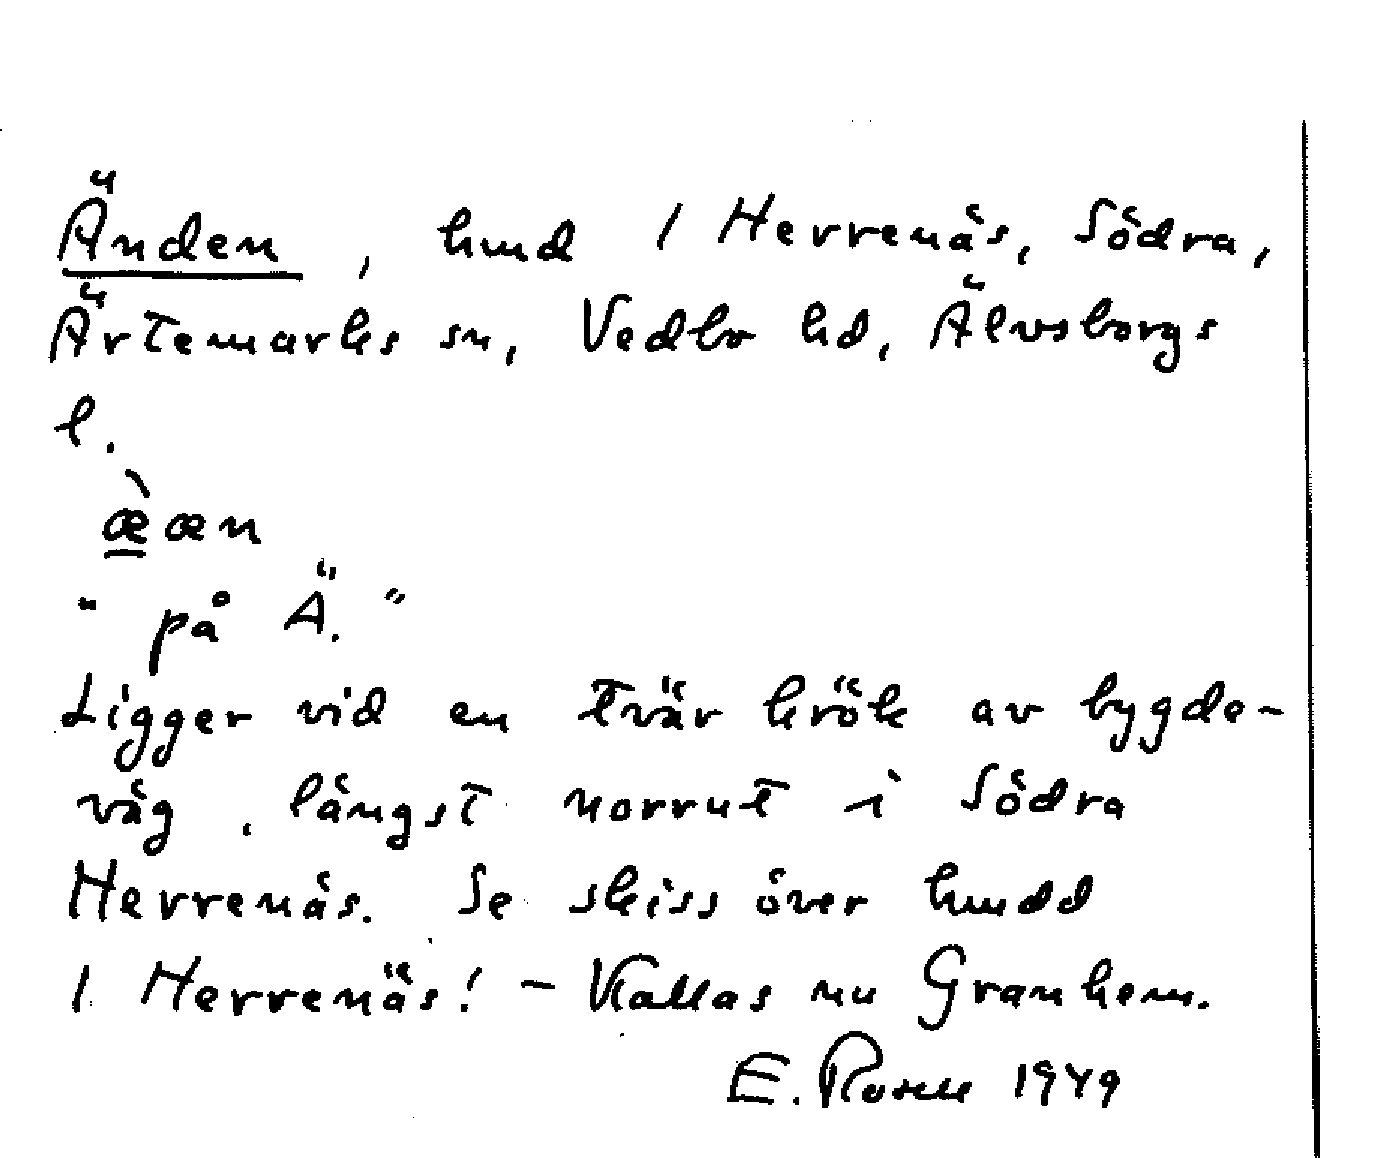 Änden, hmd 1 Herrenäs, Södra,
Ärtemarks sn, Vedbo hd, Älvsborgs
l.
æ̀æn
"på Ä."
Ligger vid en tvär krök av bygde-
väg, längst norrut i Södra
Herrenäs. Se skiss över hmdd
1 Herrenäs! - Kallas nu Granhem.
E. Rosell 1949